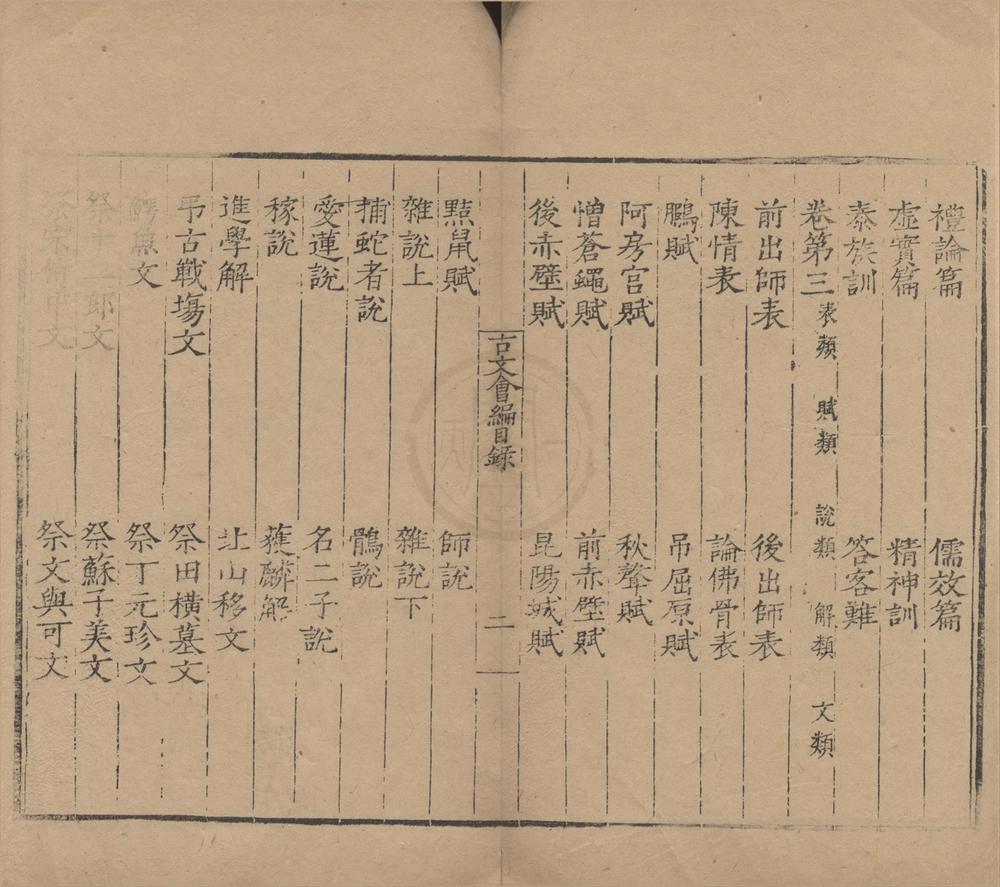 禮論篇 儒效篇
虛實篇 精神訓
泰族訓 答客難
卷第三 表類 賦類 說類 解類 文類
前出師表 後出師表
陳情表 論佛骨表
鵩賦 吊屈原賦
阿房宮賦 秋聲賦
憎蒼蠅賦 前赤壁賦
後赤壁賦 昆陽城賦
古文會編目錄 二
黠鼠賦 師說
雜說上 雜說下
捕蛇者說 鶻說
愛蓮說 名二子說
稼說 獲麟解
進學解 北山移文
弔古戰塲文 祭田橫墓文
鰐魚文 祭丁元珍文
祭十二郎文 祭蘇子美文
祭文與可文